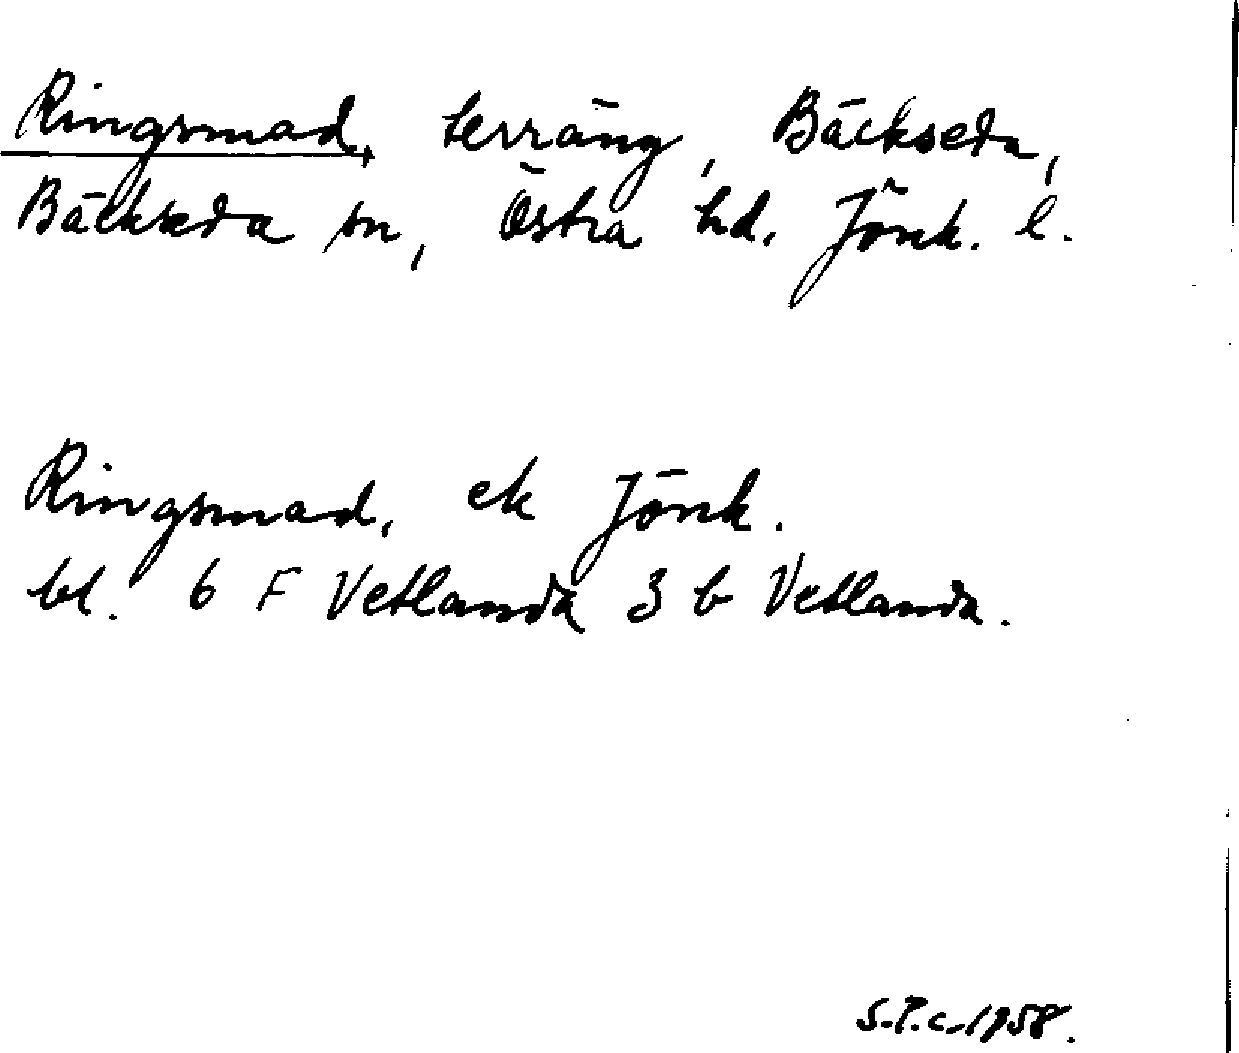 Ringsmad, terräng, Bäckseda,
Bäckseda sn, Östra hd. Jönk. l.
Ringsmad, ek Jönk.
bl. 6 F Vetlanda 3 b Vetlanda.
S.P.c. 1958.